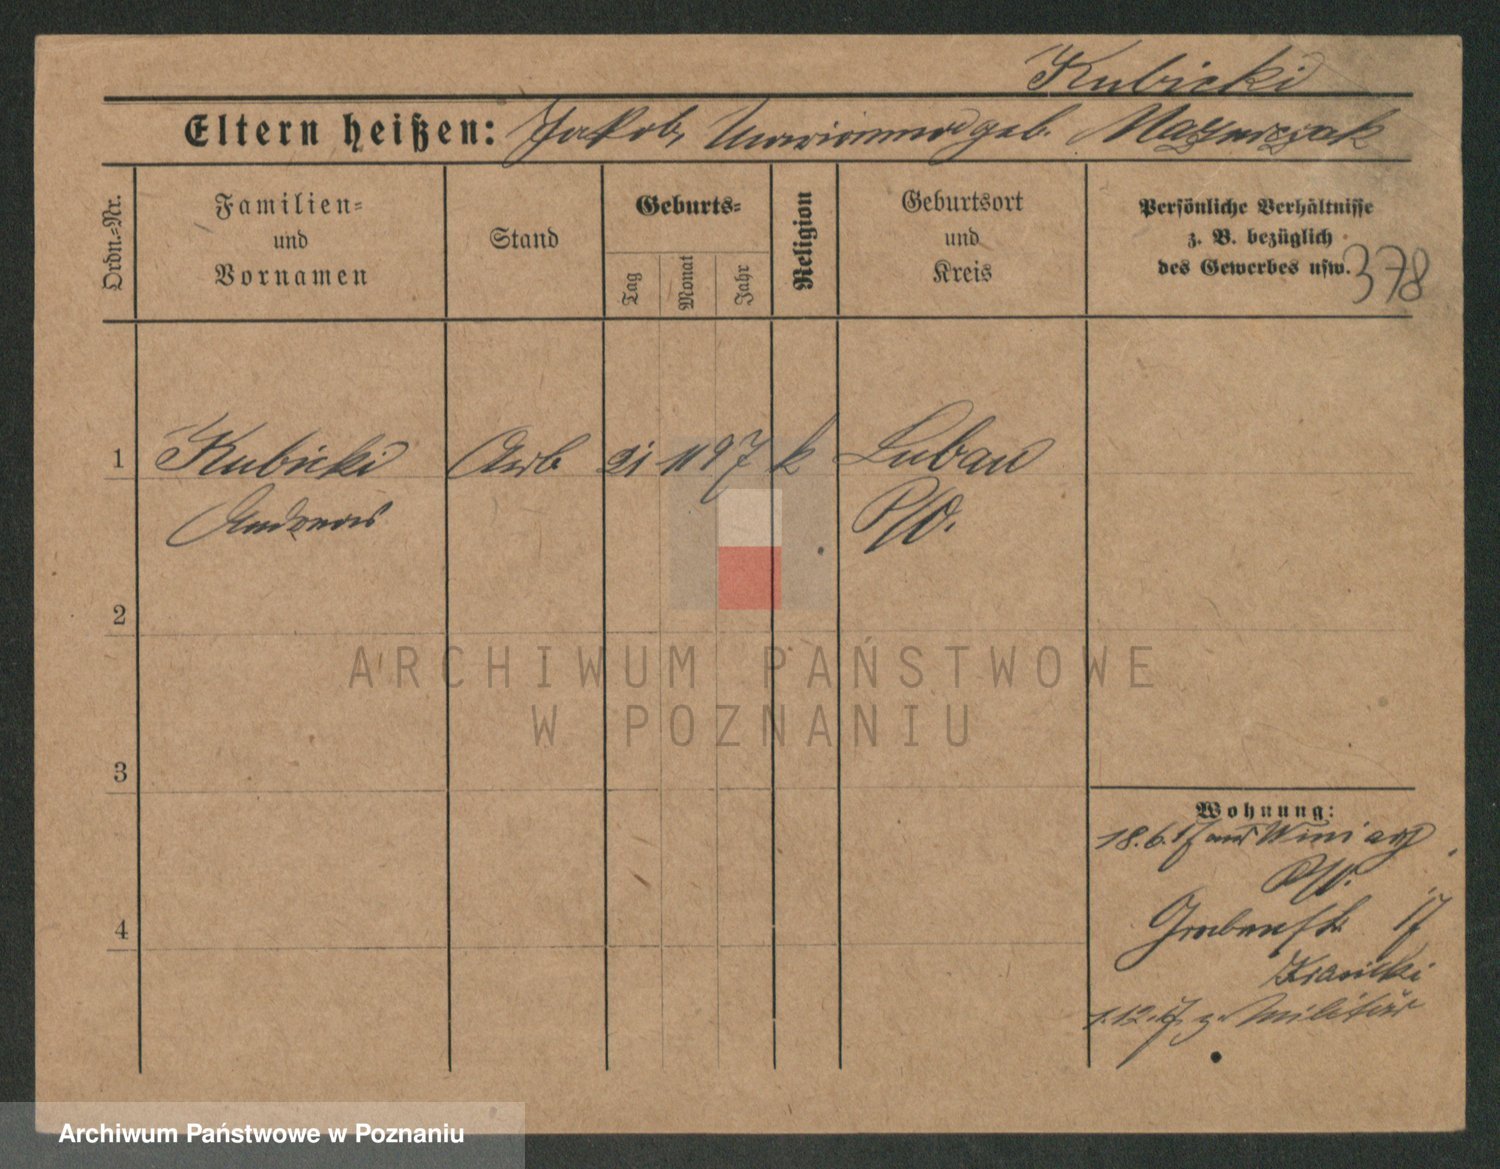 Kubicki
Eltern heißen: Jakob, Marianna geb. Mazurczak
Ordn.-Nr.
Familien-
und
Vornamen
Stand
Geburts-
Tag
Monat
Jahr
Religion
Geburtsort
und
Kreis
Persönliche Verhältnisse
z. B. bezüglich
des Gewerbes usw.
378
1 Kubicki Arb 21 11 97 k Luban
Andreas P/O.
2
ARCHIWUM PAŃSTWOWE
W POZNANIU
3
Wohnung:
18.6.17 aus Winiary
P/O.
4
Grabenstr. 17
1.12.17 z. Militär
Archiwum Państwowe w Poznaniu